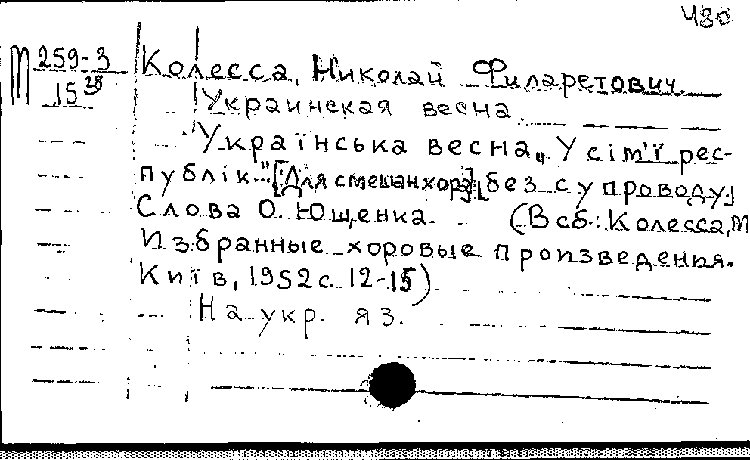 480
М 259-3
15 28
Колесса, Николай Филаретович.
Украинская весна.
"Українська весна„ У сім'ї рес-
публік." [Для смешан хора] [без супроводу]
Слова О. Ющенка. (В сб.: Колесса, М
Избранные хоровые произведения.
Київ, 1952 с. 12-15)
На укр. яз.